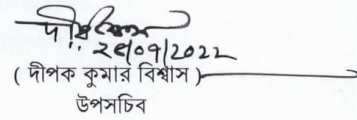 ২৫/০৭/২০২২
( দীপক কুমার বিশ্বাস )
উপসচিব